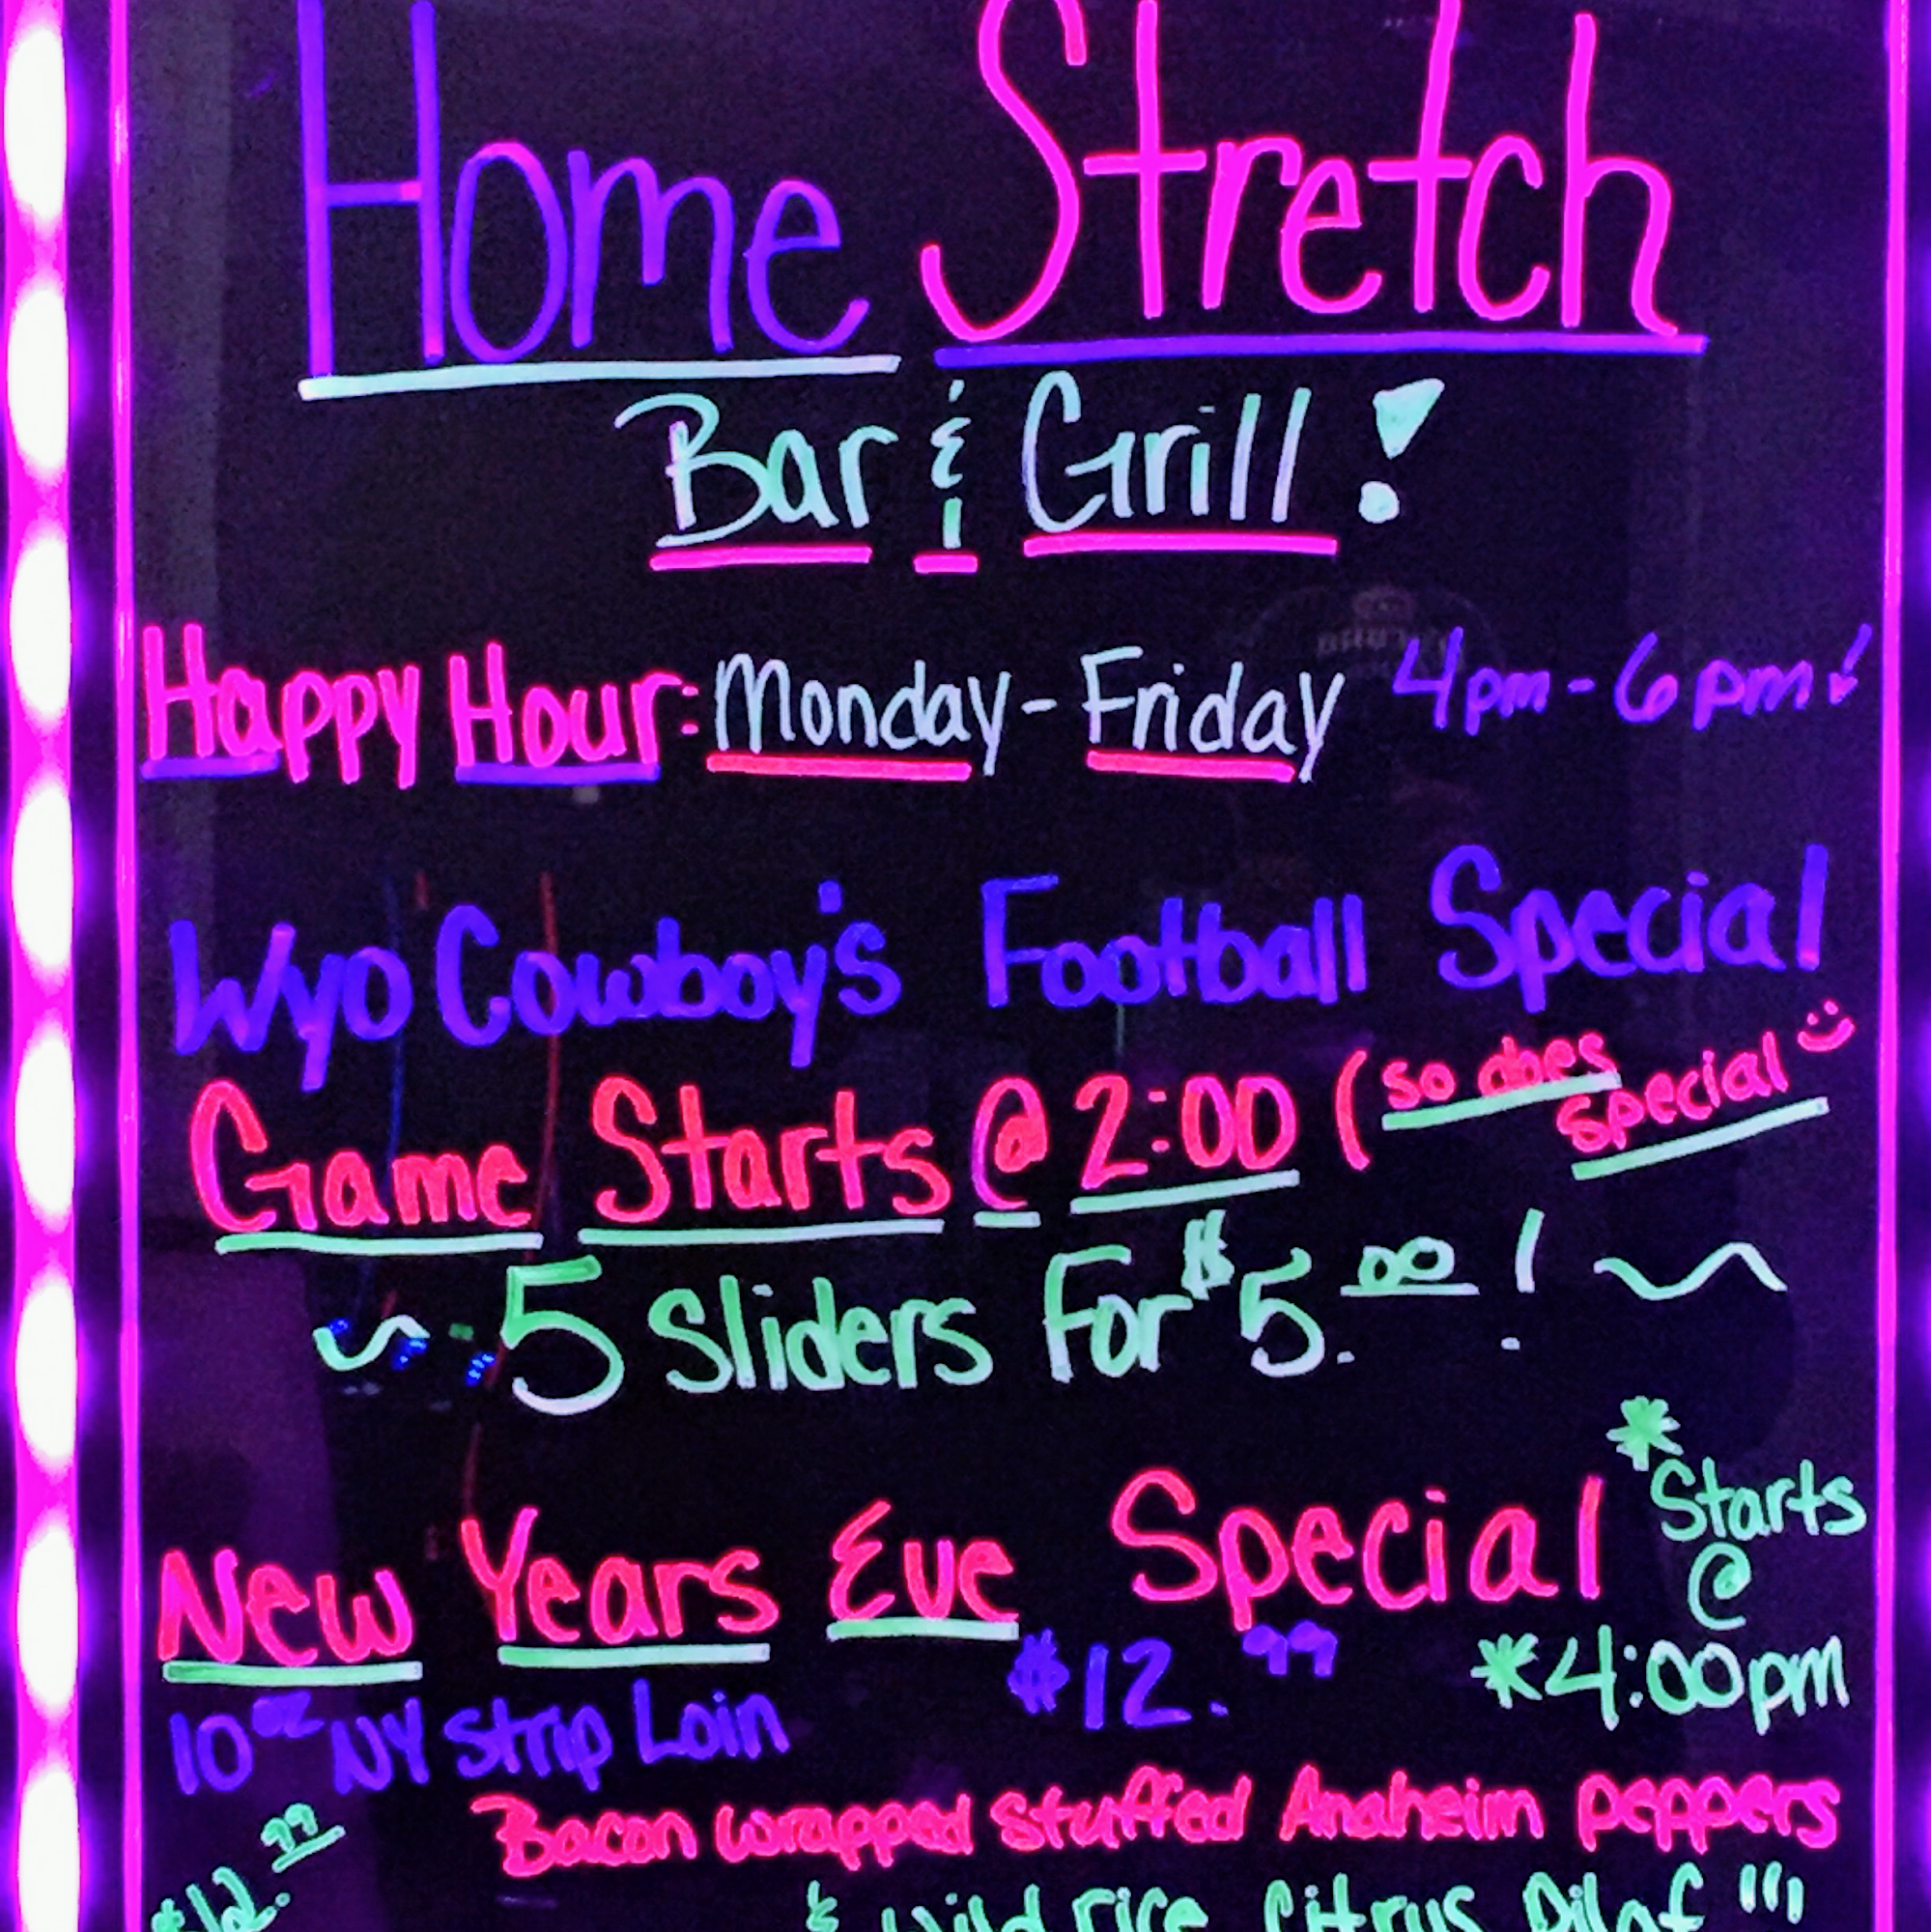 Home Stretch
Bar & Grill!
Happy Hour: Monday - Friday 4pm - 6pm!
Wyo Cowboy's Football Special
Game Starts @ 2:00 (so does special
~ 5 Sliders For $5.00! ~
New Years Eve Special *Starts @
$12.99 *4:00pm
10oz NY Strip Loin
Bacon wrapped stuffed Anaheim peppers
$12.99
& Wild rice Citrus Pilaf "!!